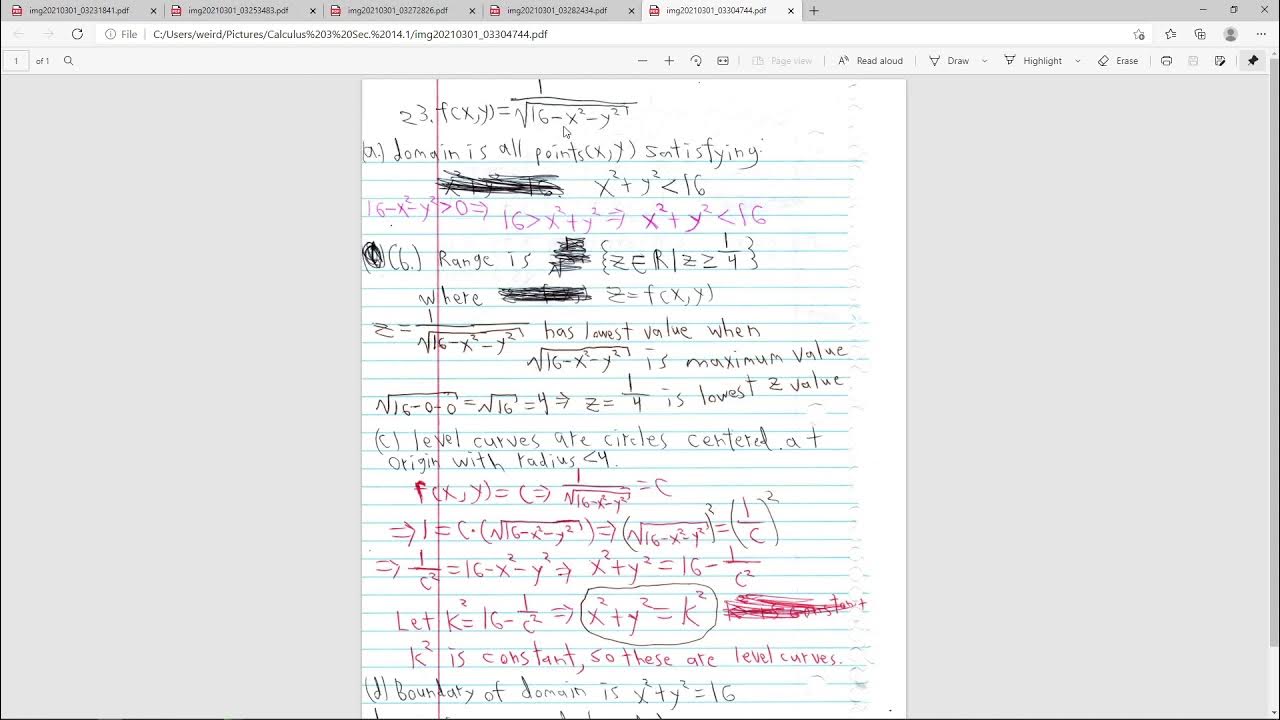 img20210301_03231841.pdf
img20210301_03253483.pdf
img20210301_03272826.pdf
img20210301_03282434.pdf
img20210301_03304744.pdf
File C:/Users/weird/Pictures/Calculus%203%20Sec.%2014.1/img20210301_03304744.pdf
1 of 1 Page view Read aloud Draw Highlight Erase
23. f(x,y) = 1/√(16-x²-y²)
(a) domain is all points (x,y) satisfying:
x²+y²<16
16-x²-y²>0 ⇒ 16>x²+y² ⇒ x²+y²<16
(b) Range is {z∈ℝ | z ≥ 1/4}
where z=f(x,y)
z = 1/√(16-x²-y²) has lowest value when
√(16-x²-y²) is maximum value
√(16-0-0) = √16 = 4 ⇒ z = 1/4 is lowest z value
(c) level curves are circles centered at
origin with radius <4.
f(x,y) = c ⇒ 1/√(16-x²-y²) = c
⇒ 1 = c·(√(16-x²-y²)) ⇒ (√(16-x²-y²))² = (1/c)²
⇒ 1/c² = 16-x²-y² ⇒ x²+y² = 16 - 1/c²
Let k² = 16 - 1/c² ⇒ x²+y² = k²
k is constant so these are level curves.
(d) boundary of domain is x²+y²=16